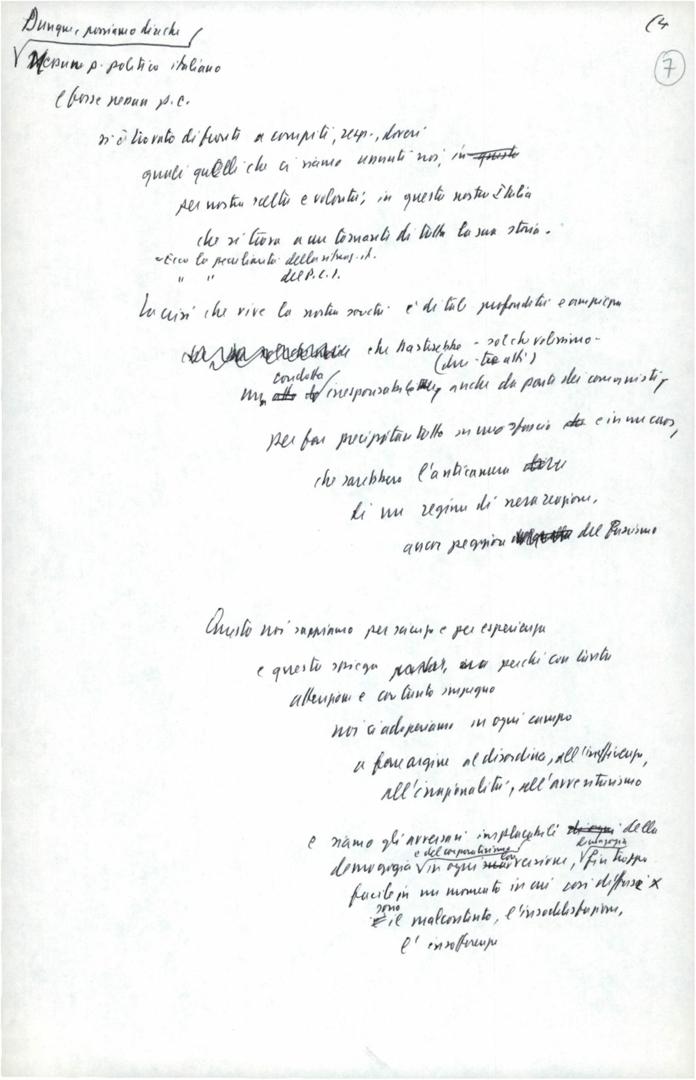 Dunque, possiamo dire che
(4
7
Nessun p. politico italiano
e forse nessun p.c.
si è trovato di fronti a compiti, resp., doveri
quali quelli che ci siamo assunti noi, in questo
per nostra scelta e volontà; in questa nostra Italia
che si trova a un tornante di tutta la sua storia.
Ecco la peculiarità della situaz. it.
" " del P.C.I.
La crisi che vive la nostra società è di tale profondità e ampiezza
che basterebbe - sol che volessimo -
(due-tre atti)
condotta
una irresponsabile anche da parte dei comunisti
per far precipitare tutto in uno sfascio e in un caos,
che sarebbero l'anticamera
di un regime di nera reazione,
ancor peggiore del fascismo
Questo noi sappiamo per scienza e per esperienza
e questo spiega perché con tanta
attenzione e con tanto impegno
noi ci adoperiamo in ogni campo
a fare argine al disordine, all'inefficienza,
all'irrazionalità, all'avventurismo
e siamo gli avversari implacabili della
demagogia
e del corporativismo
demagogia in ogni versione, fin troppo
facile in un momento in cui così diffusi
sono
il malcontento, l'insoddisfazione,
l'insofferenza